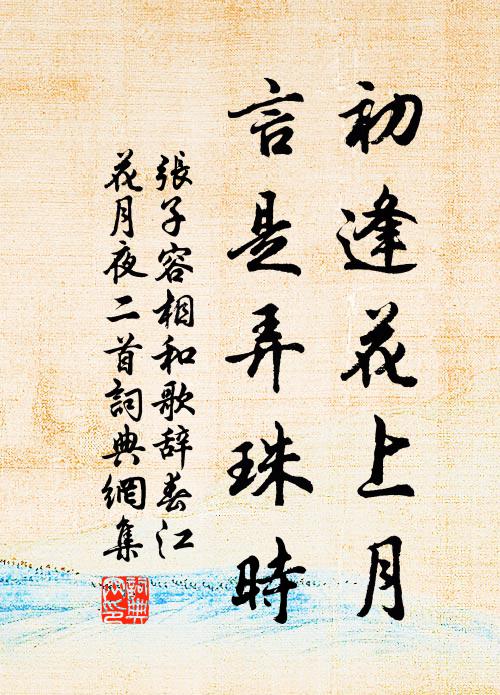 初逢花上月
言是弄珠時
張子容相和歌辞春江
花月夜二首詞典網集